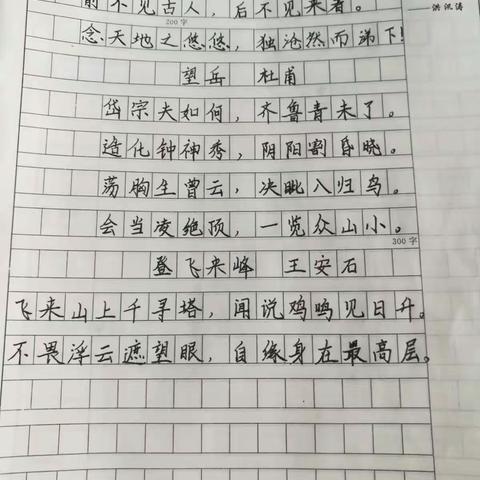 前不见古人，后不见来者。
——洪汛涛
200字
念天地之悠悠，独沧然而涕下!
望岳 杜甫
岱宗夫如何，齐鲁青未了。
造化钟神秀，阴阳割昏晓。
荡胸生曾云，决眦入归鸟。
会当凌绝顶，一览众山小。
300字
登飞来峰 王安石
飞来山上千寻塔，闻说鸡鸣见日升。
不畏浮云遮望眼，自缘身在最高层。